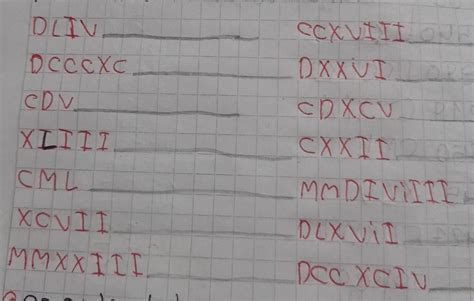 DLIV
DCCCXC
CDV
XLIII
CML
XCVII
MMXXIII
CCXVIII
DXXVI
CDXCV
CXXII
MMDIViIII
DLXViI
DCCXCIV